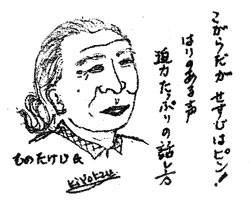 こがらだが せすじはピン!
はりのある声
迫力たっぷりの話し方
ものたけし氏
kiyokazu